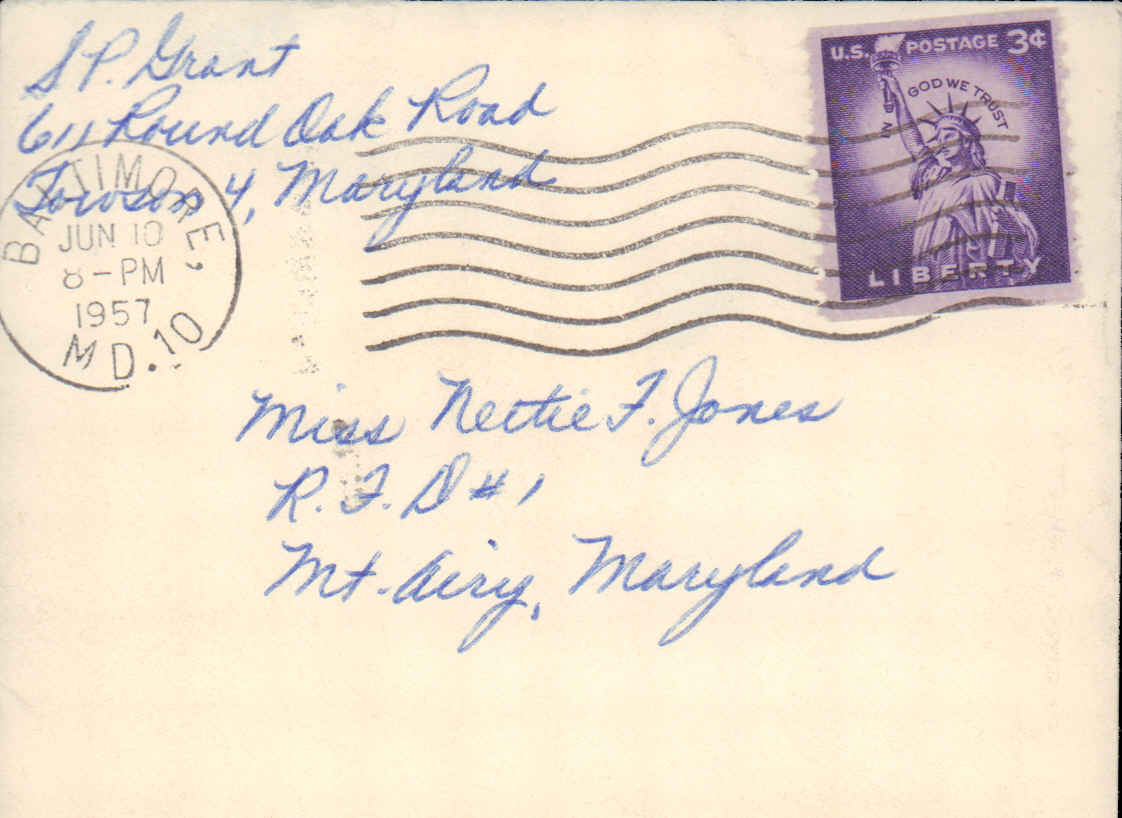 S P. Grant
611 Round Oak Road
Towson 4, Maryland
BALTIMORE,
JUN 10
8-PM
1957
MD. 10
U.S. POSTAGE 3¢
IN GOD WE TRUST
LIBERTY
Miss Nettie F. Jones
R. F. D #1
Mt. Airy, Maryland